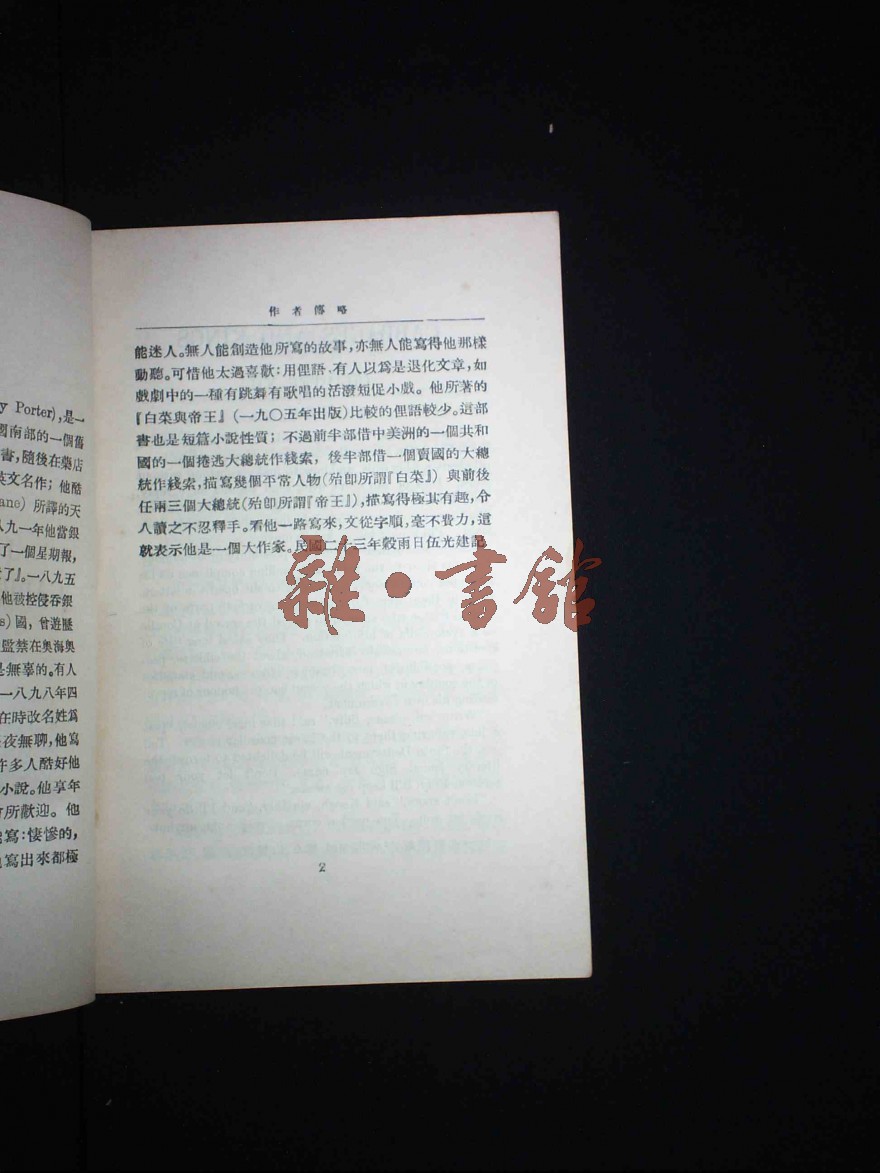 y Porter),是一
國南部的一個舊
書,隨後在藥店
英文名作;他酷
ane) 所譯的天
八九一年他當銀
了一個星期報,
了』。一八九五
他被控侵吞銀
s) 國,曾遊歷
監禁在奧海奧
是無辜的。有人
一八九八年四
在時改名姓爲
夜無聊,他寫
許多人酷好他
小說。他享年
所歡迎。他
寫:悽慘的,
寫出來都極
作者傳略
能迷人。無人能創造他所寫的故事,亦無人能寫得他那樣
動聽。可惜他太過喜歡:用俚語、有人以爲是退化文章,如
戲劇中的一種有跳舞有歌唱的活潑短促小戲。他所著的
『白菜與帝王』(一九〇五年出版)比較的俚語較少。這部
書也是短篇小說性質;不過前半部借中美洲的一個共和
國的一個捲逃大總統作綫索,後半部借一個賣國的大總
統作綫索,描寫幾個平常人物(殆卽所謂『白菜』)與前後
任兩三個大總統(殆卽所謂『帝王』),描寫得極其有趣,令
人讀之不忍釋手。看他一路寫來,文從字順,毫不費力,這
就表示他是一個大作家。民國二十三年穀雨日伍光建記
2
雜·書館